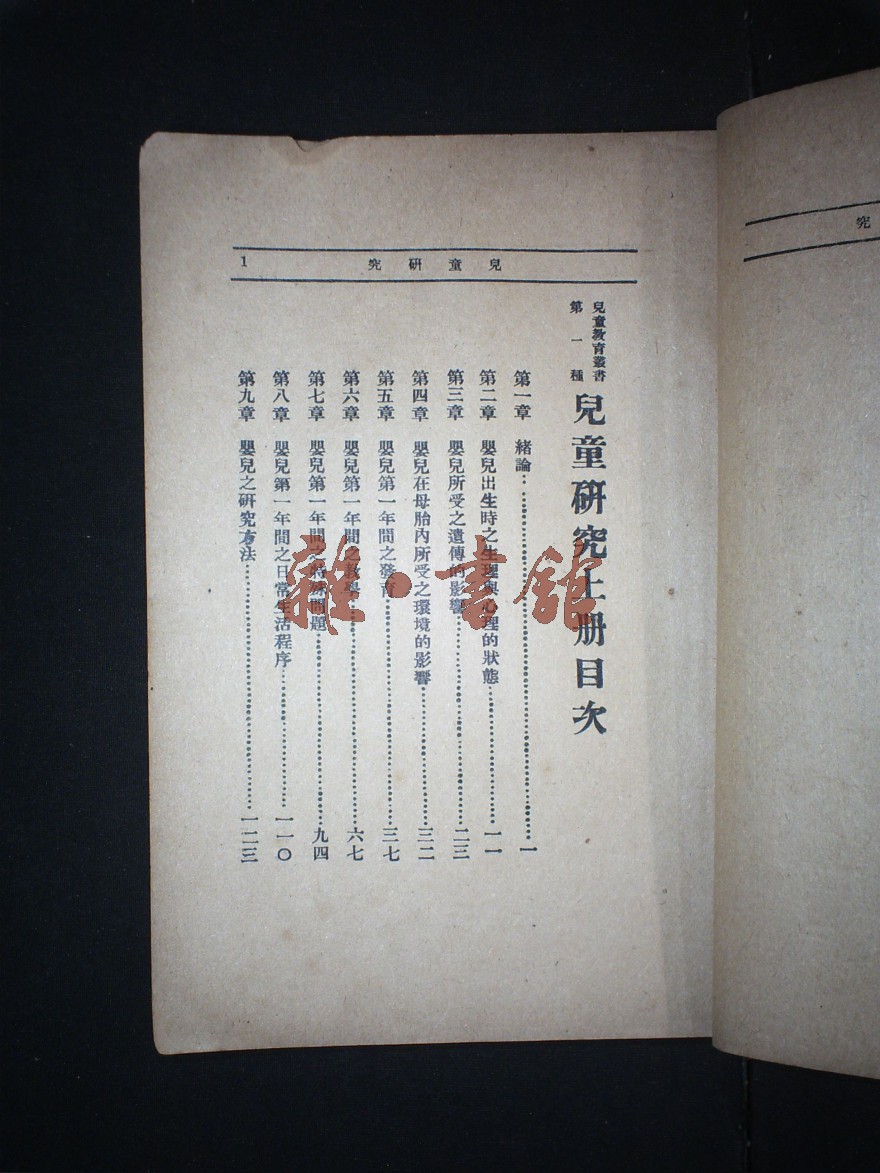 兒童研究
1
兒童教育叢書
第一種
兒童研究上册目次
第一章 緒論……………一
第二章 嬰兒出生時之生理與心理的狀態……………一一
第三章 嬰兒所受之遺傳的影響……………二三
第四章 嬰兒在母胎內所受之環境的影響……………三二
第五章 嬰兒第一年間之發育……………三七
第六章 嬰兒第一年間之教學……………六七
第七章 嬰兒第一年間之特殊問題……………九四
第八章 嬰兒第一年間之日常生活程序……………一一〇
第九章 嬰兒之研究方法……………一二三
究
雜·書館